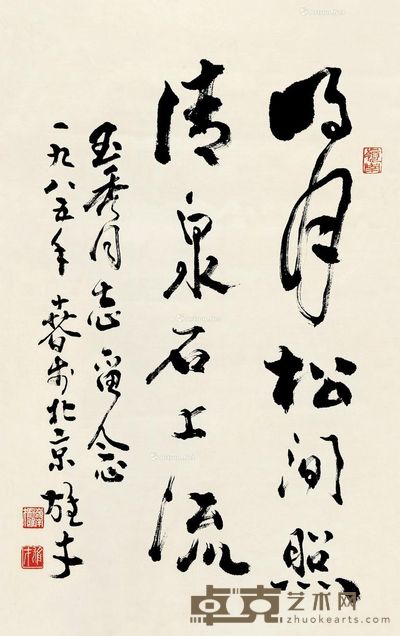 明月松间照
清泉石上流
玉秀同志留念
一九八五年春于北京 雄才
卓克艺术网
www.zhuokearts.com